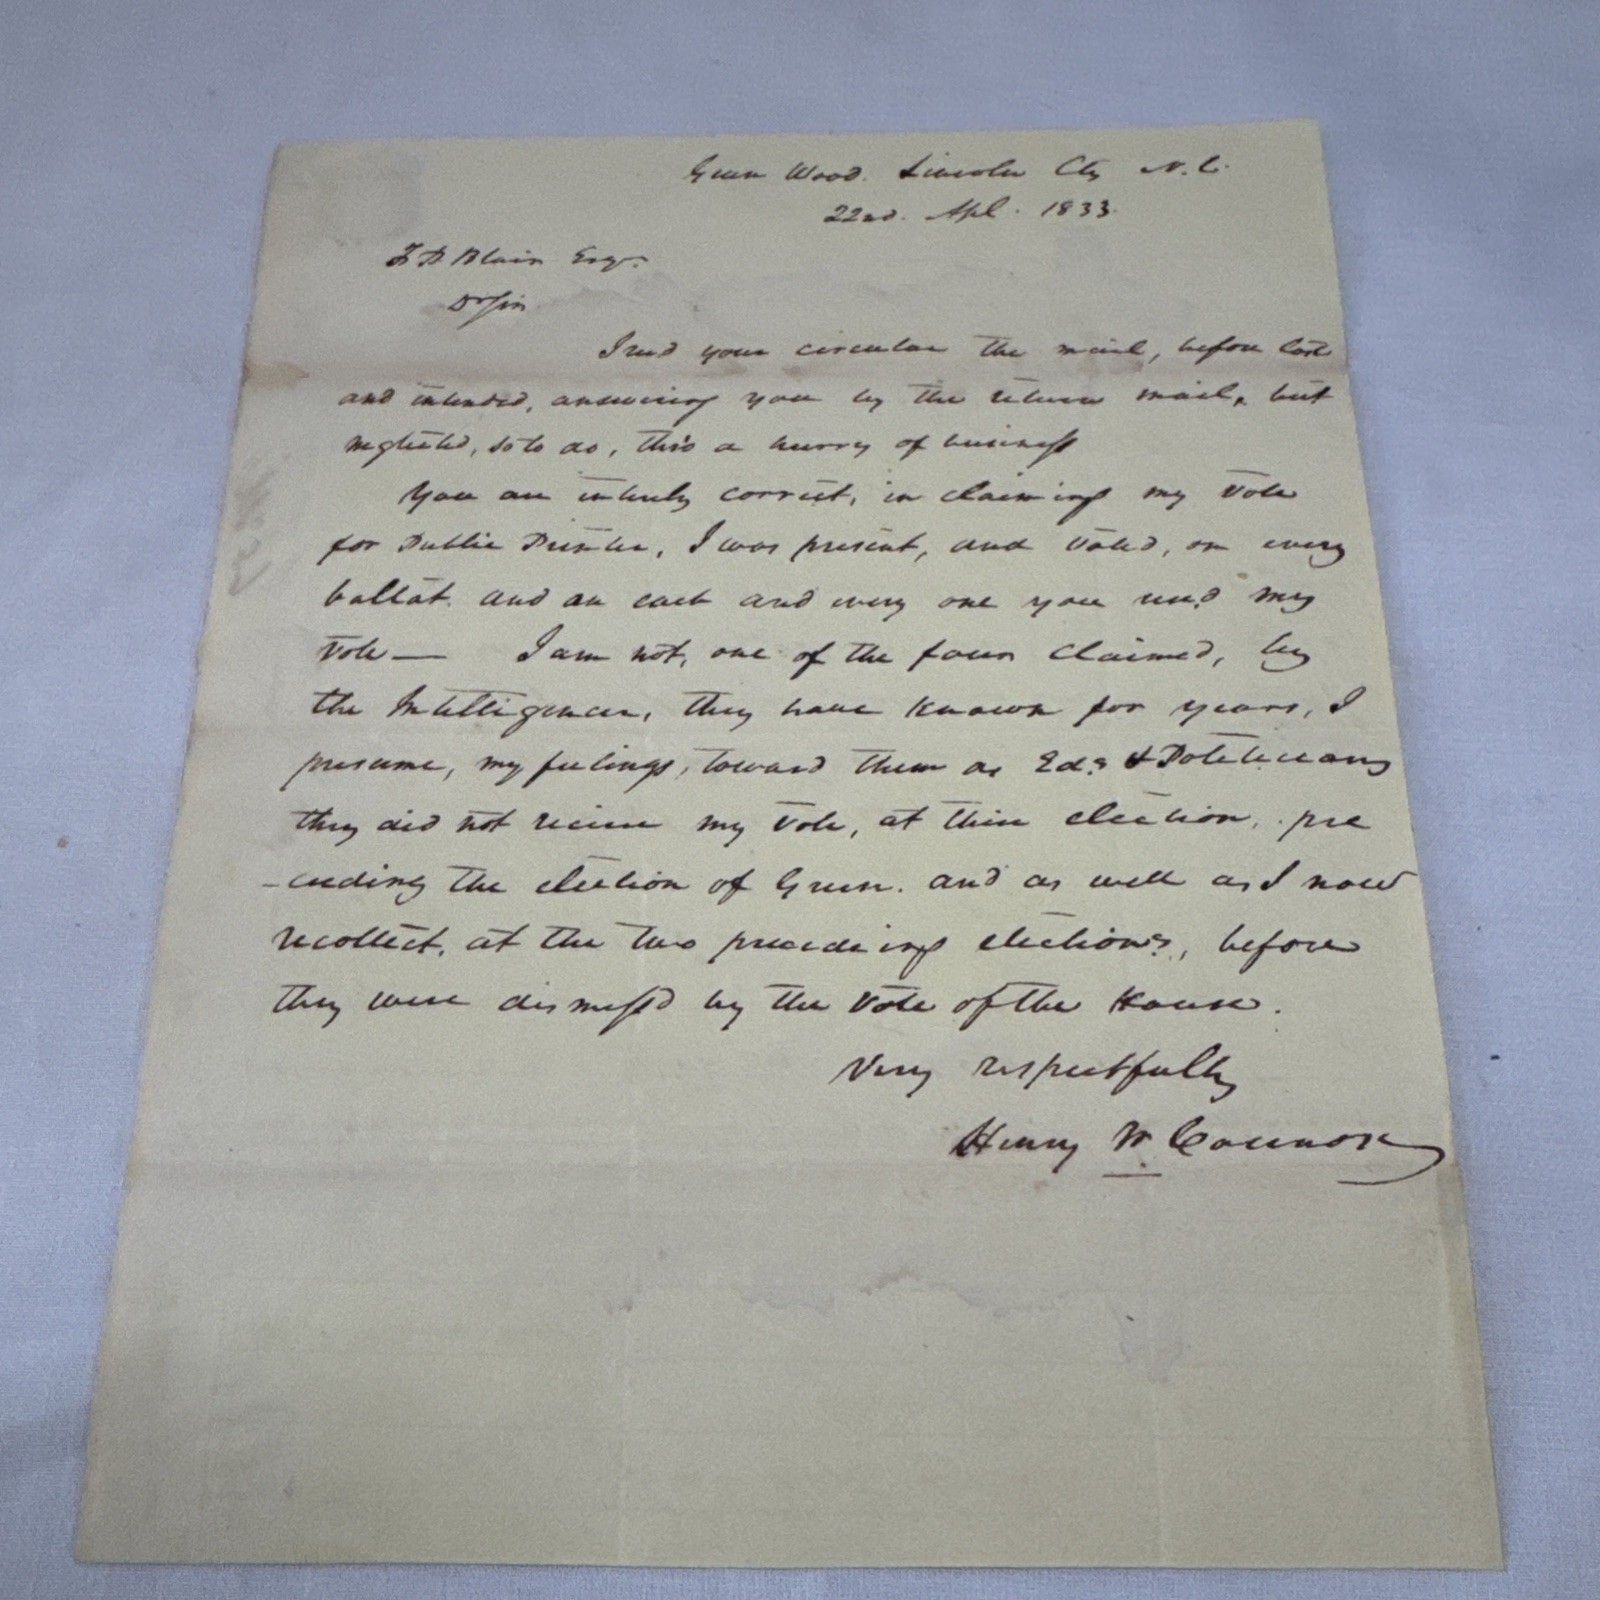 Green Wood. Lincoln Cty N.C.
22nd. Apl. 1833.
F P Blair Esqr.
Dr Sir
I recd your circular the mail, before last
and intended, answering you by the return mail, but
neglected, so to do, thro a hurry of business
You are intirely correct, in claiming my vote
for Public Printer, I was present, and voted, on every
ballot and on each and every one you recd my
vote — I am not, one of the four claimed, by
the Intelligencer, they have known for years, I
presume, my feelings, toward them as Eds & Politicians
they did not receive my vote, at their election, pre
-ceeding the election of Green. and as well as I now
recollect, at the two preceding elections, before
they were dismissed by the vote of the House.
Very respectfully
Henry W Connor